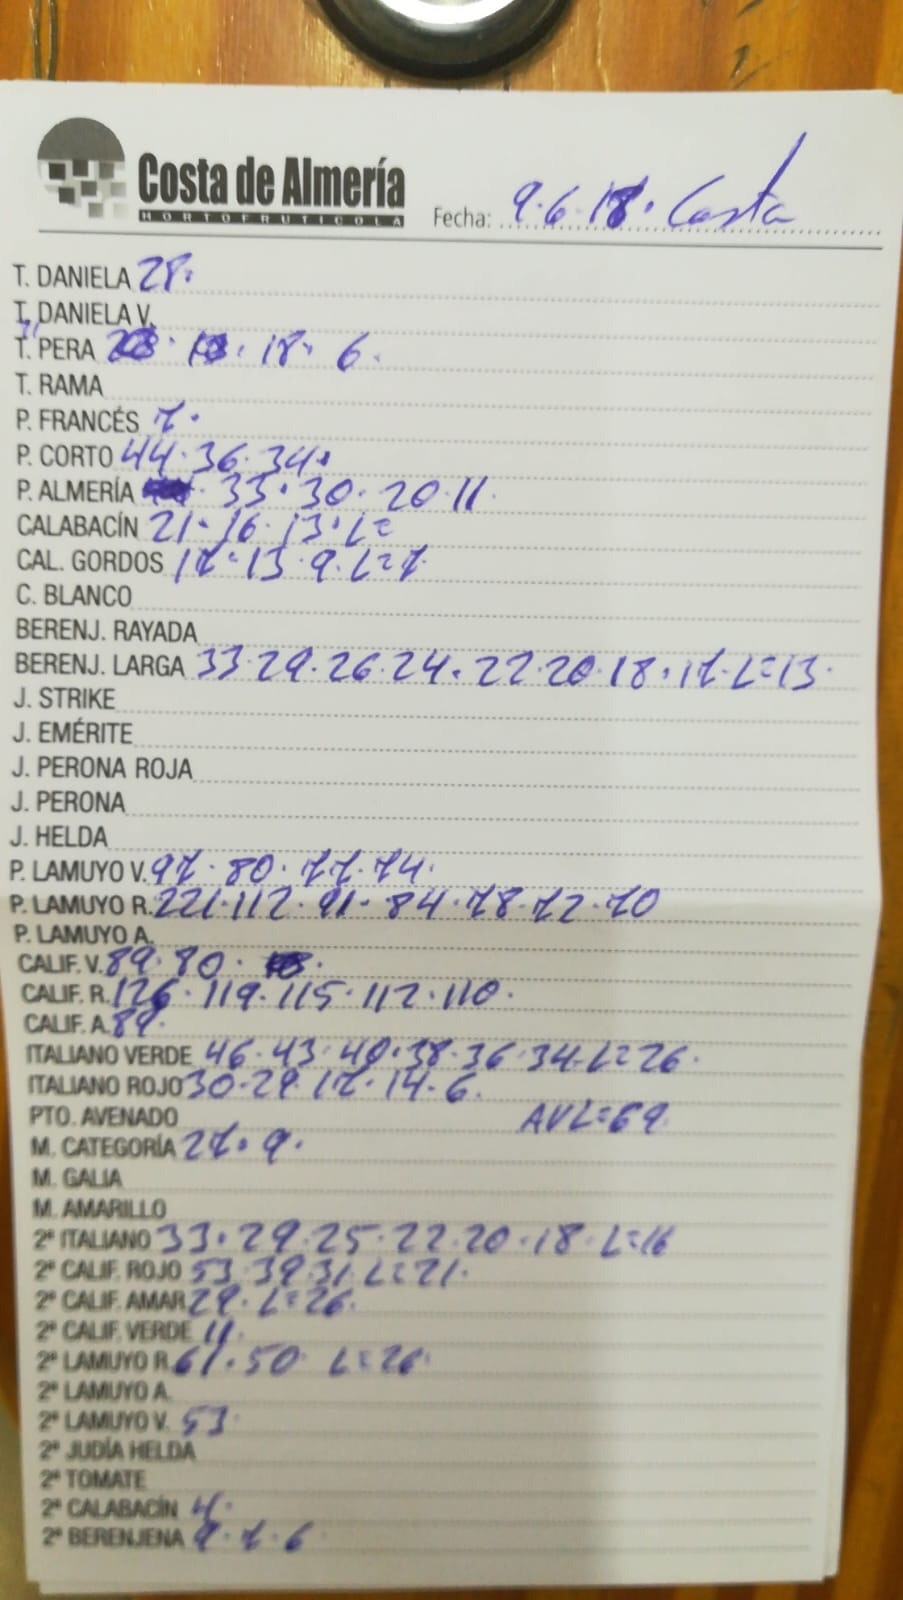 Costa de Almería
HORTOFRUTÍCOLA
Fecha: 9.6.18. Costa
T. DANIELA 28.
T. DANIELA V.
T. PERA 18. 6.
T. RAMA
P. FRANCÉS 7.
P. CORTO 44.36.34.
P. ALMERÍA 33.30.20.11.
CALABACÍN 21.16.13.L=
CAL. GORDOS 17.13.9.L=7.
C. BLANCO
BERENJ. RAYADA
BERENJ. LARGA 33.29.26.24.22.20.18.17.L=13.
J. STRIKE
J. EMÉRITE
J. PERONA ROJA
J. PERONA
J. HELDA
P. LAMUYO V. 97.80.77.74.
P. LAMUYO R. 221.112.91.84.78.72.70
P. LAMUYO A.
CALIF. V. 89.80.
CALIF. R. 126.119.115.112.110.
CALIF. A. 89.
ITALIANO VERDE 46.43.40.38.36.34.L=26.
ITALIANO ROJO 30.29.17.14.6.
PTO. AVENADO AVL=69.
M. CATEGORÍA 27.9.
M. GALIA
M. AMARILLO
2ª ITALIANO 33.29.25.22.20.18.L=16
2ª CALIF. ROJO 53.39.31.L=21.
2ª CALIF. AMAR 29.L=26.
2ª CALIF. VERDE 11.
2ª LAMUYO R. 61.50 L=26.
2ª LAMUYO A.
2ª LAMUYO V. 53.
2ª JUDÍA HELDA
2ª TOMATE
2ª CALABACÍN 4.
2ª BERENJENA 9.7.6